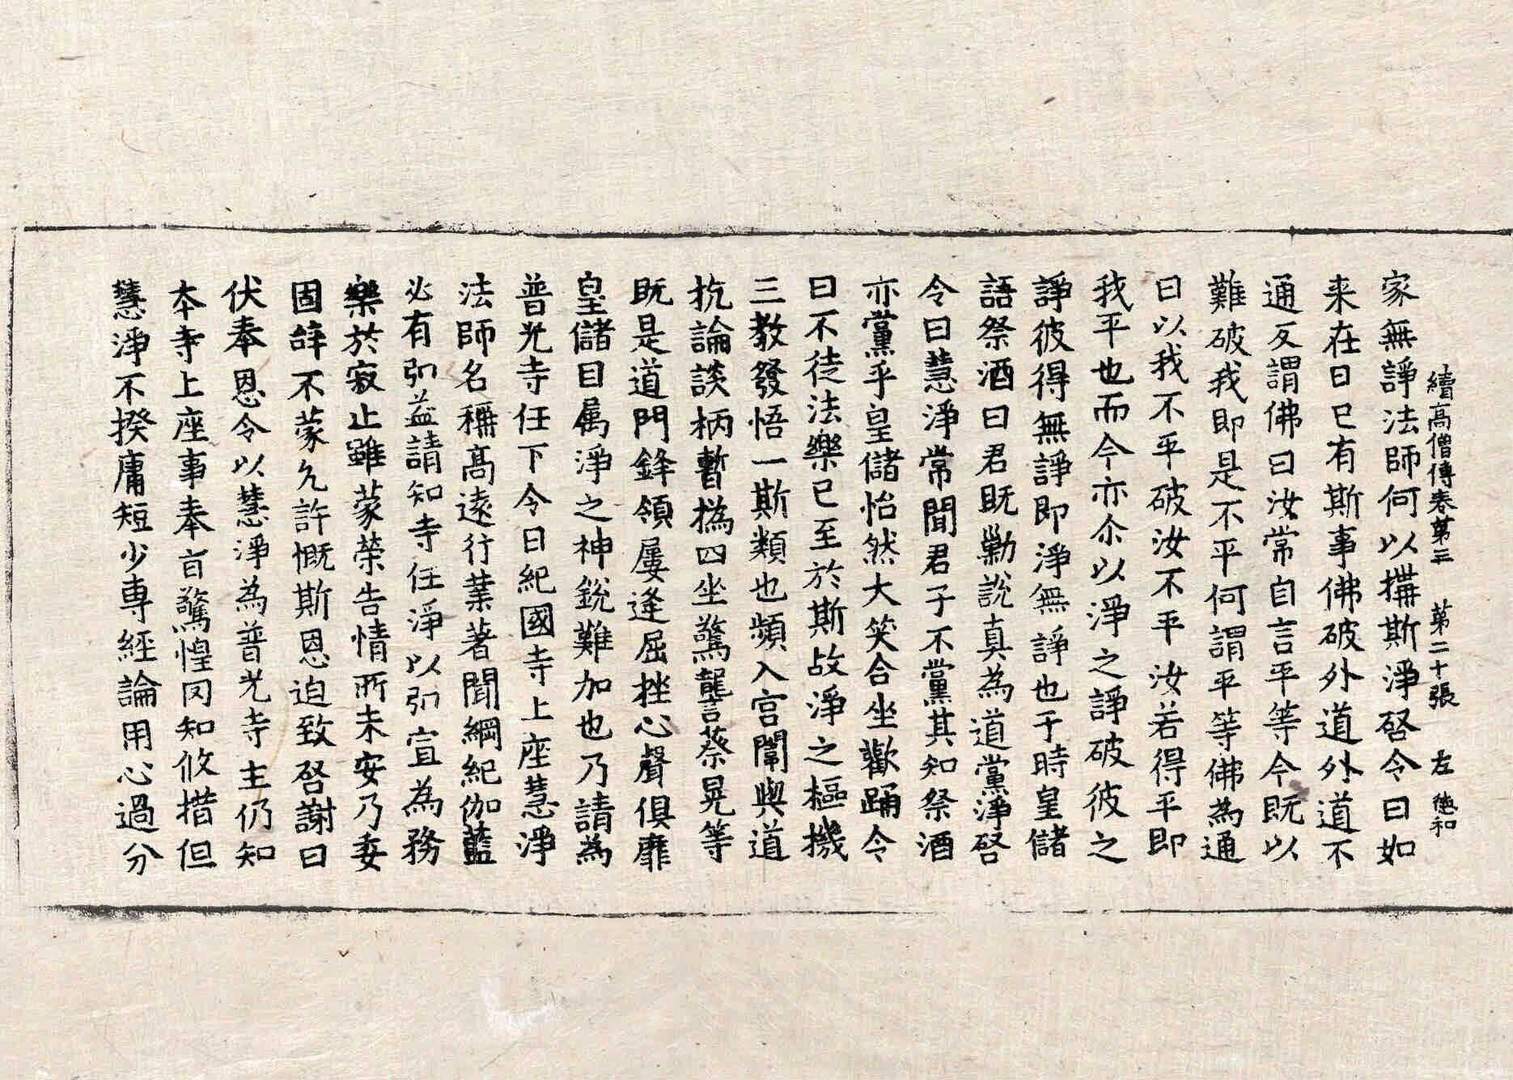 續高僧傳卷第三 第二十張 左 㥁和
家無諍法師何以搆斯淨啓令曰如
来在日已有斯事佛破外道外道不
通反謂佛曰汝常自言平等今既以
難破我即是不平何謂平等佛為通
曰以我不平破汝不平汝若得平即
我平也而今亦尒以淨之諍破彼之
諍彼得無諍即淨無諍也于時皇儲
語祭酒曰君既勦說真為道黨淨啓
令曰慧淨常聞君子不黨其知祭酒
亦黨乎皇儲怡然大笑合坐歡踊令
曰不徒法樂已至於斯故淨之樞機
三教發悟一斯類也頻入宫闈與道
抗論談柄暫撝四坐驚讋蔡晃等
既是道門鋒領屢逢屈挫心聲俱靡
皇儲目属淨之神銳難加也乃請為
普光寺任下令曰紀國寺上座慧淨
法師名稱高遠行業著聞綱紀伽藍
必有弘益請知寺任淨以弘宣為務
樂於寂止雖蒙榮告情所未安乃委
固辞不蒙允許慨斯恩迫致啓謝曰
伏奉恩令以慧淨為普光寺主仍知
本寺上座事奉旨驚惶罔知攸措但
慧淨不揆庸短少專經論用心過分